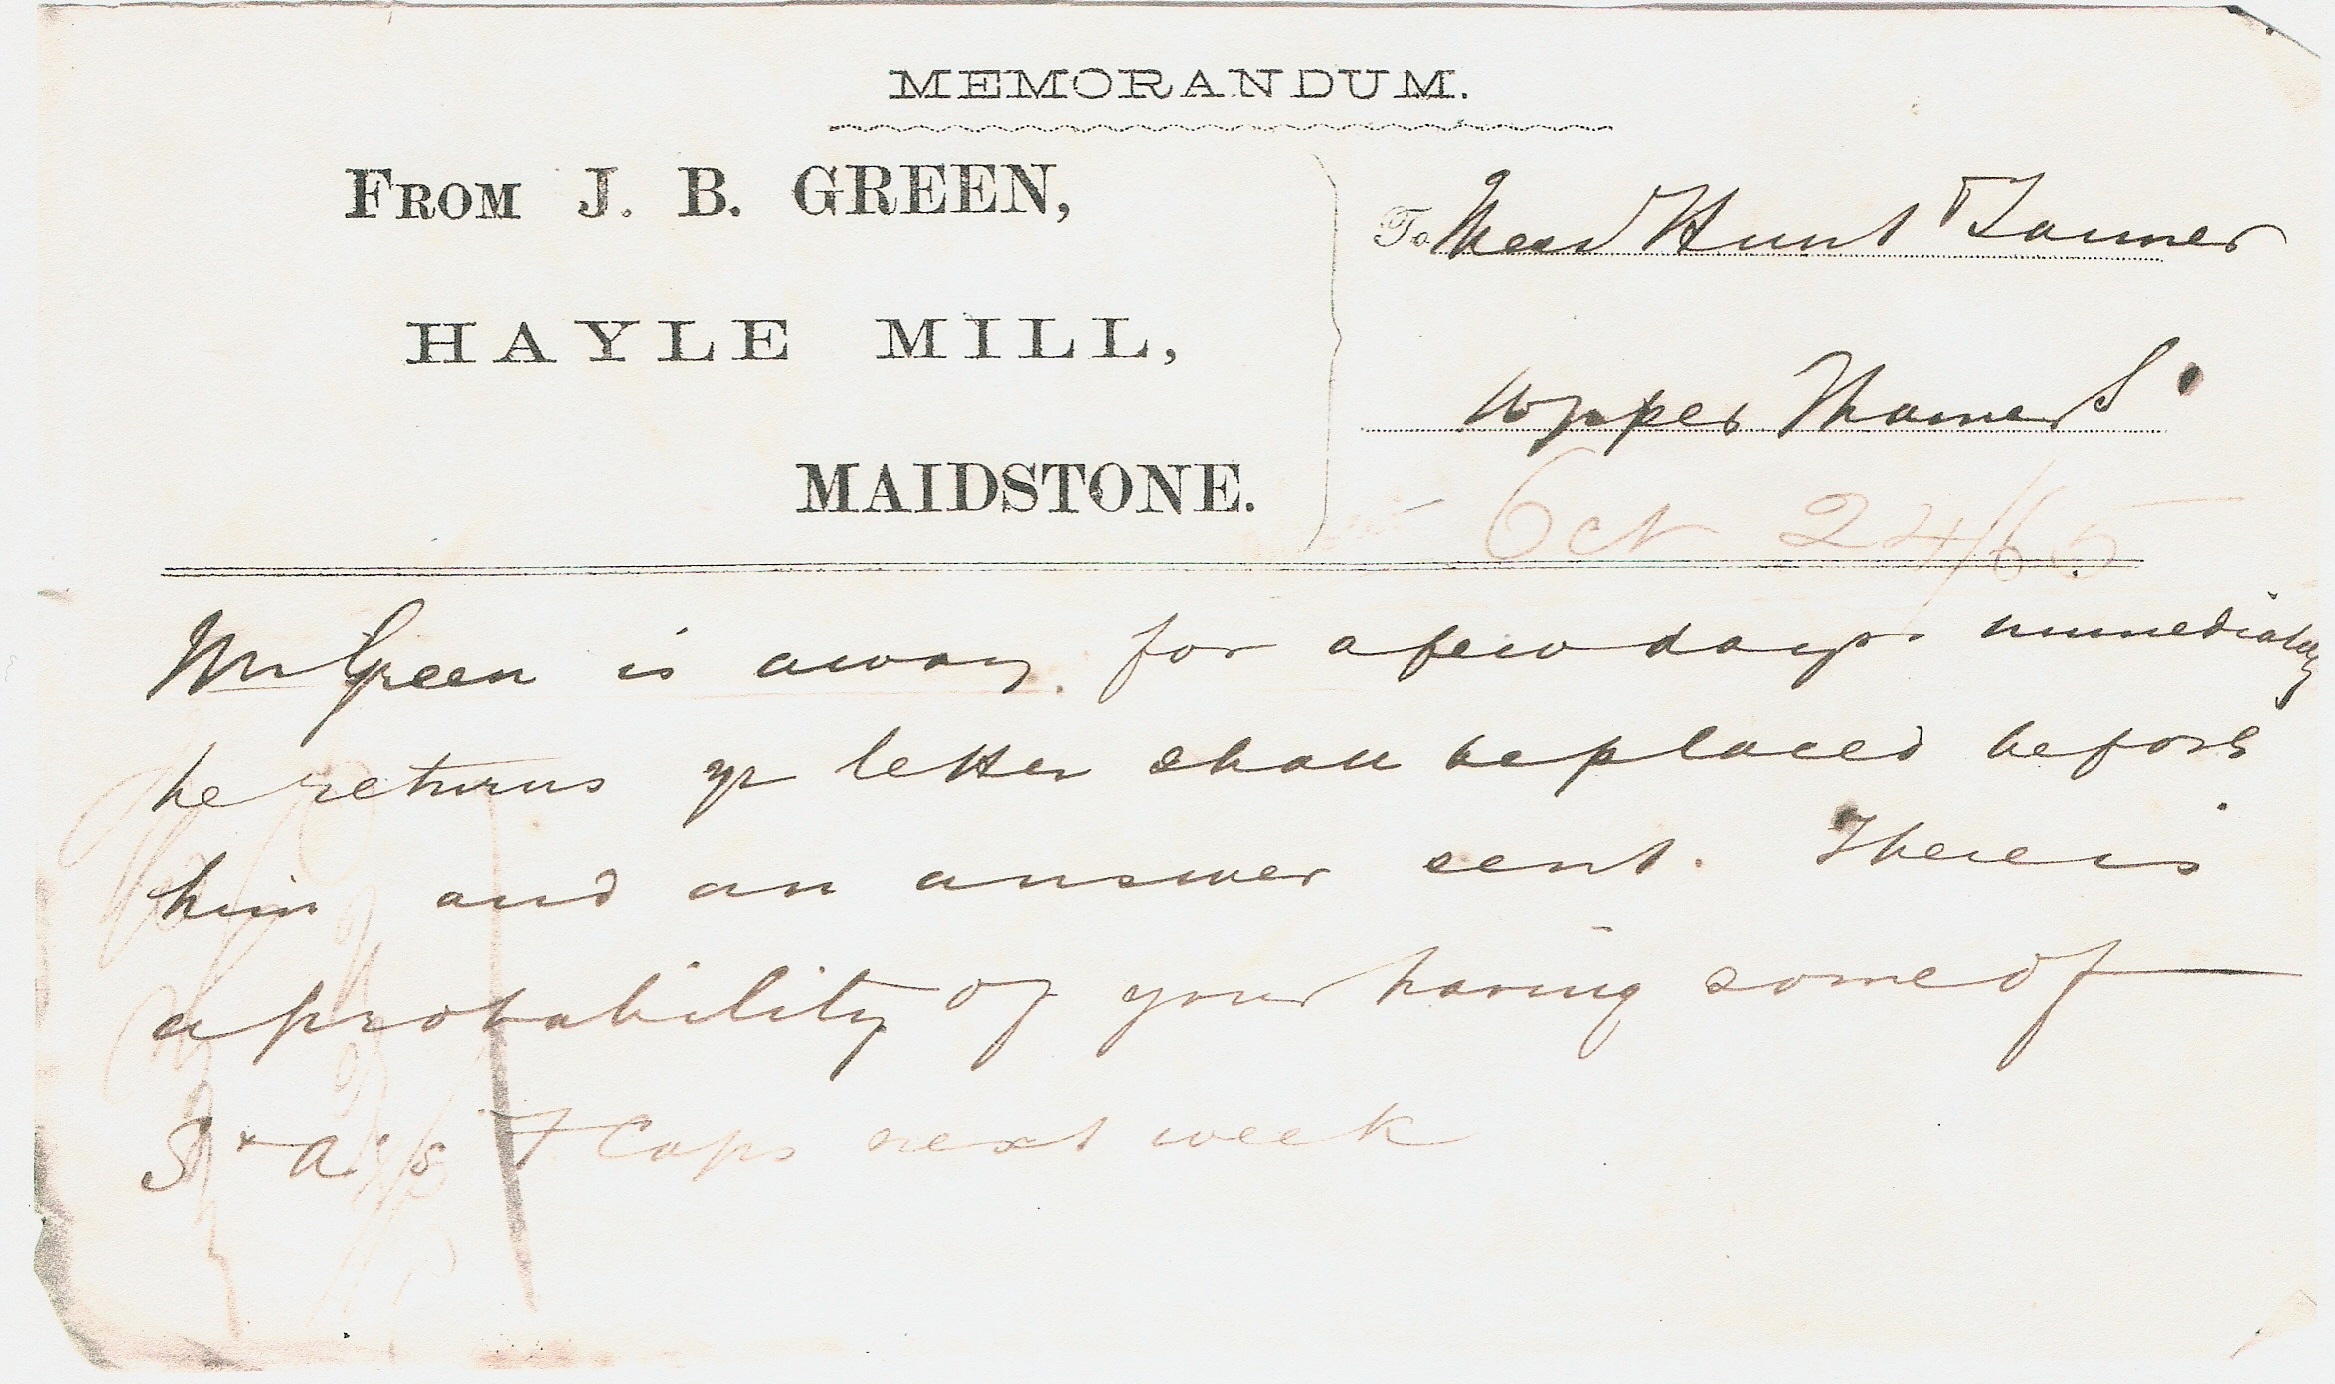 MEMORANDUM.
FROM J. B. GREEN,
HAYLE MILL,
MAIDSTONE.
To Messrs Hunt & Tanner
Upper Thames St
Oct 24/65
Mr Green is away for a few days. immediately
he returns yr letter shall be placed before
him and an answer sent. There is
a probability of your having some of
next week